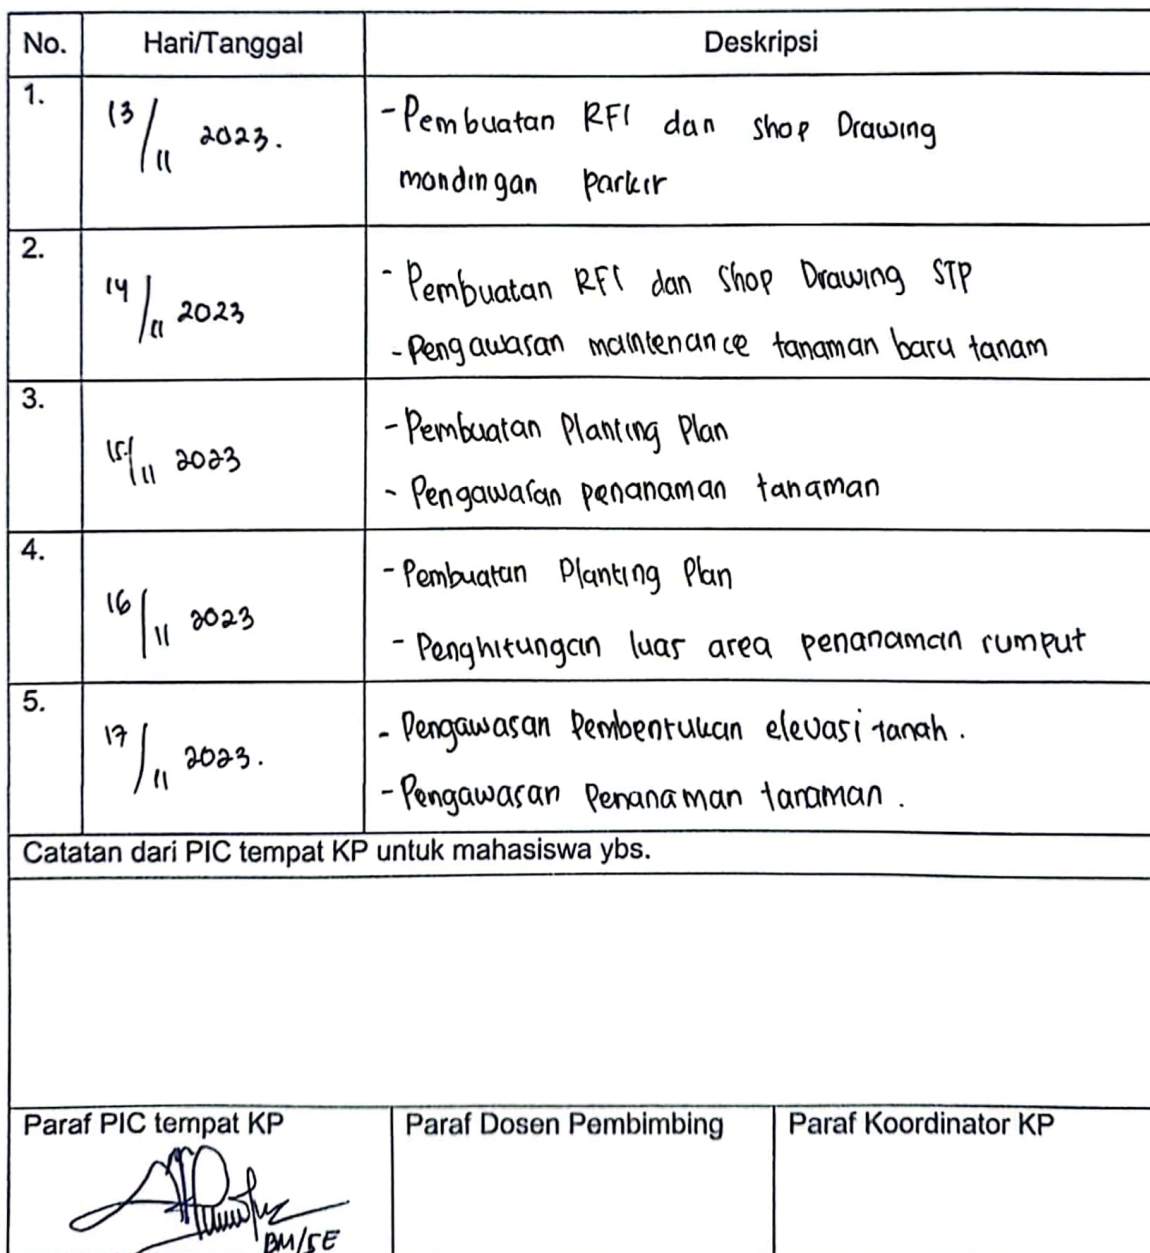 No. Hari/Tanggal Deskripsi
1. 13/11 2023. - Pembuatan RFI dan Shop Drawing
mondingan parkir
2. 14/11 2023 - Pembuatan RFI dan Shop Drawing STP
- Pengawasan maintenance tanaman baru tanam
3. 15/11 2023 - Pembuatan Planting Plan
- Pengawasan penanaman tanaman
4. 16/11 2023 - Pembuatan Planting Plan
- Penghitungan luas area penanaman rumput
5. 17/11 2023. - Pengawasan Pembentukan elevasi tanah.
- Pengawasan Penanaman tanaman.
Catatan dari PIC tempat KP untuk mahasiswa ybs.
Paraf PIC tempat KP Paraf Dosen Pembimbing Paraf Koordinator KP
BM/SE